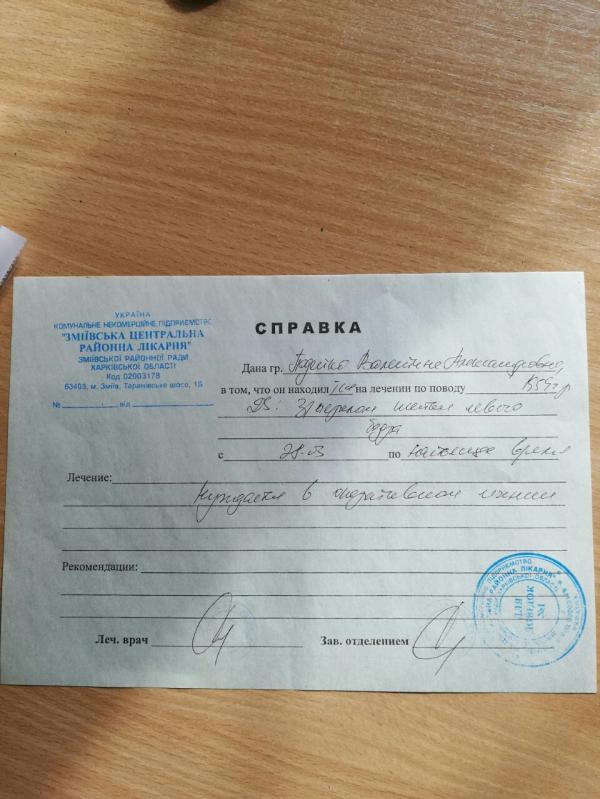 УКРАЇНА
КОМУНАЛЬНЕ НЕКОМЕРЦІЙНЕ ПІДПРИЄМСТВО
"ЗМІЇВСЬКА ЦЕНТРАЛЬНА
РАЙОННА ЛІКАРНЯ"
ЗМІЇВСЬКОЇ РАЙОННОЇ РАДИ
ХАРКІВСЬКОЇ ОБЛАСТІ
Код 02003178
63403, м. Зміїв, Таранівське шосе, 1Б
№ від
СПРАВКА
Дана гр. Валентине Александровне,
в том, что он находил на лечении по поводу
DS: перелом шейки левого
бедра
с по настоящее время
Лечение:
Нуждается в оперативном лечении
Рекомендации:
Леч. врач Зав. отделением
РАЙОННА ЛІКАРНЯ"
ДЛЯ
ДОВІДОК
№1